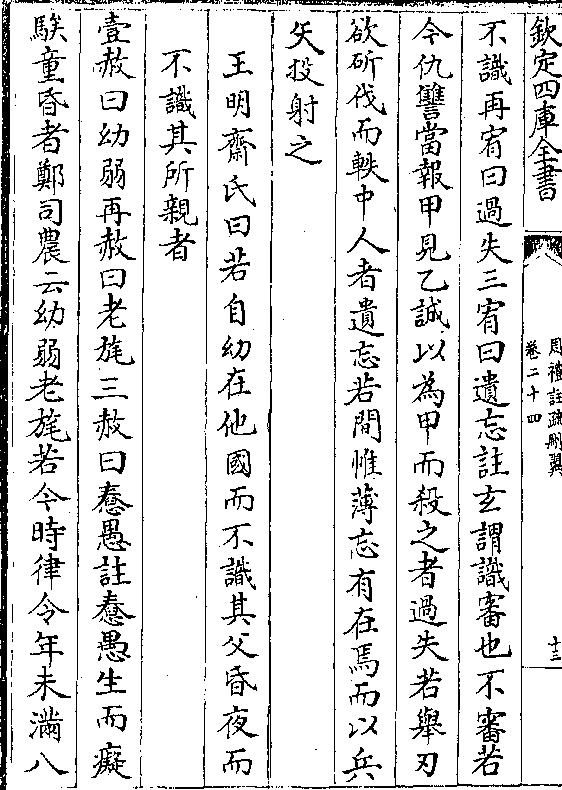 欽定四庫全書
周禮註疏刪翼
卷二十四
十三
不識再宥曰過失三宥曰遺忘註玄謂識審也不審若
今仇讐當報甲見乙誠以為甲而殺之者過失若舉刃
欲斫伐而軼中人者遺忘若間帷薄忘有在焉而以兵
矢投射之
王明齋氏曰若自幼在他國而不識其父昏夜而
不識其所親者
壹赦曰幼弱再赦曰老旄三赦曰憃愚註憃愚生而癡
騃童昏者鄭司農云幼弱老旄若今時律令年未滿八